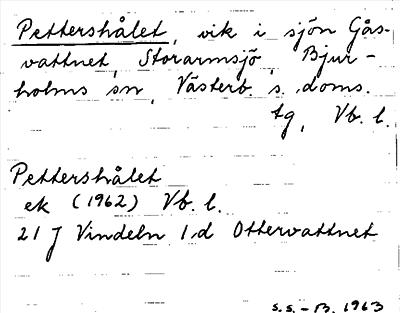 Pettershålet, vik i sjön Gås-
vattnet, Storarmsjö, Bjur-
holms sn, Västerb. s. doms.
tg, Vb. l.
Pettershålet
ek (1962) Vb. l.
21 J Vindeln 1d Ottervattnet
S.S. - B. 1963